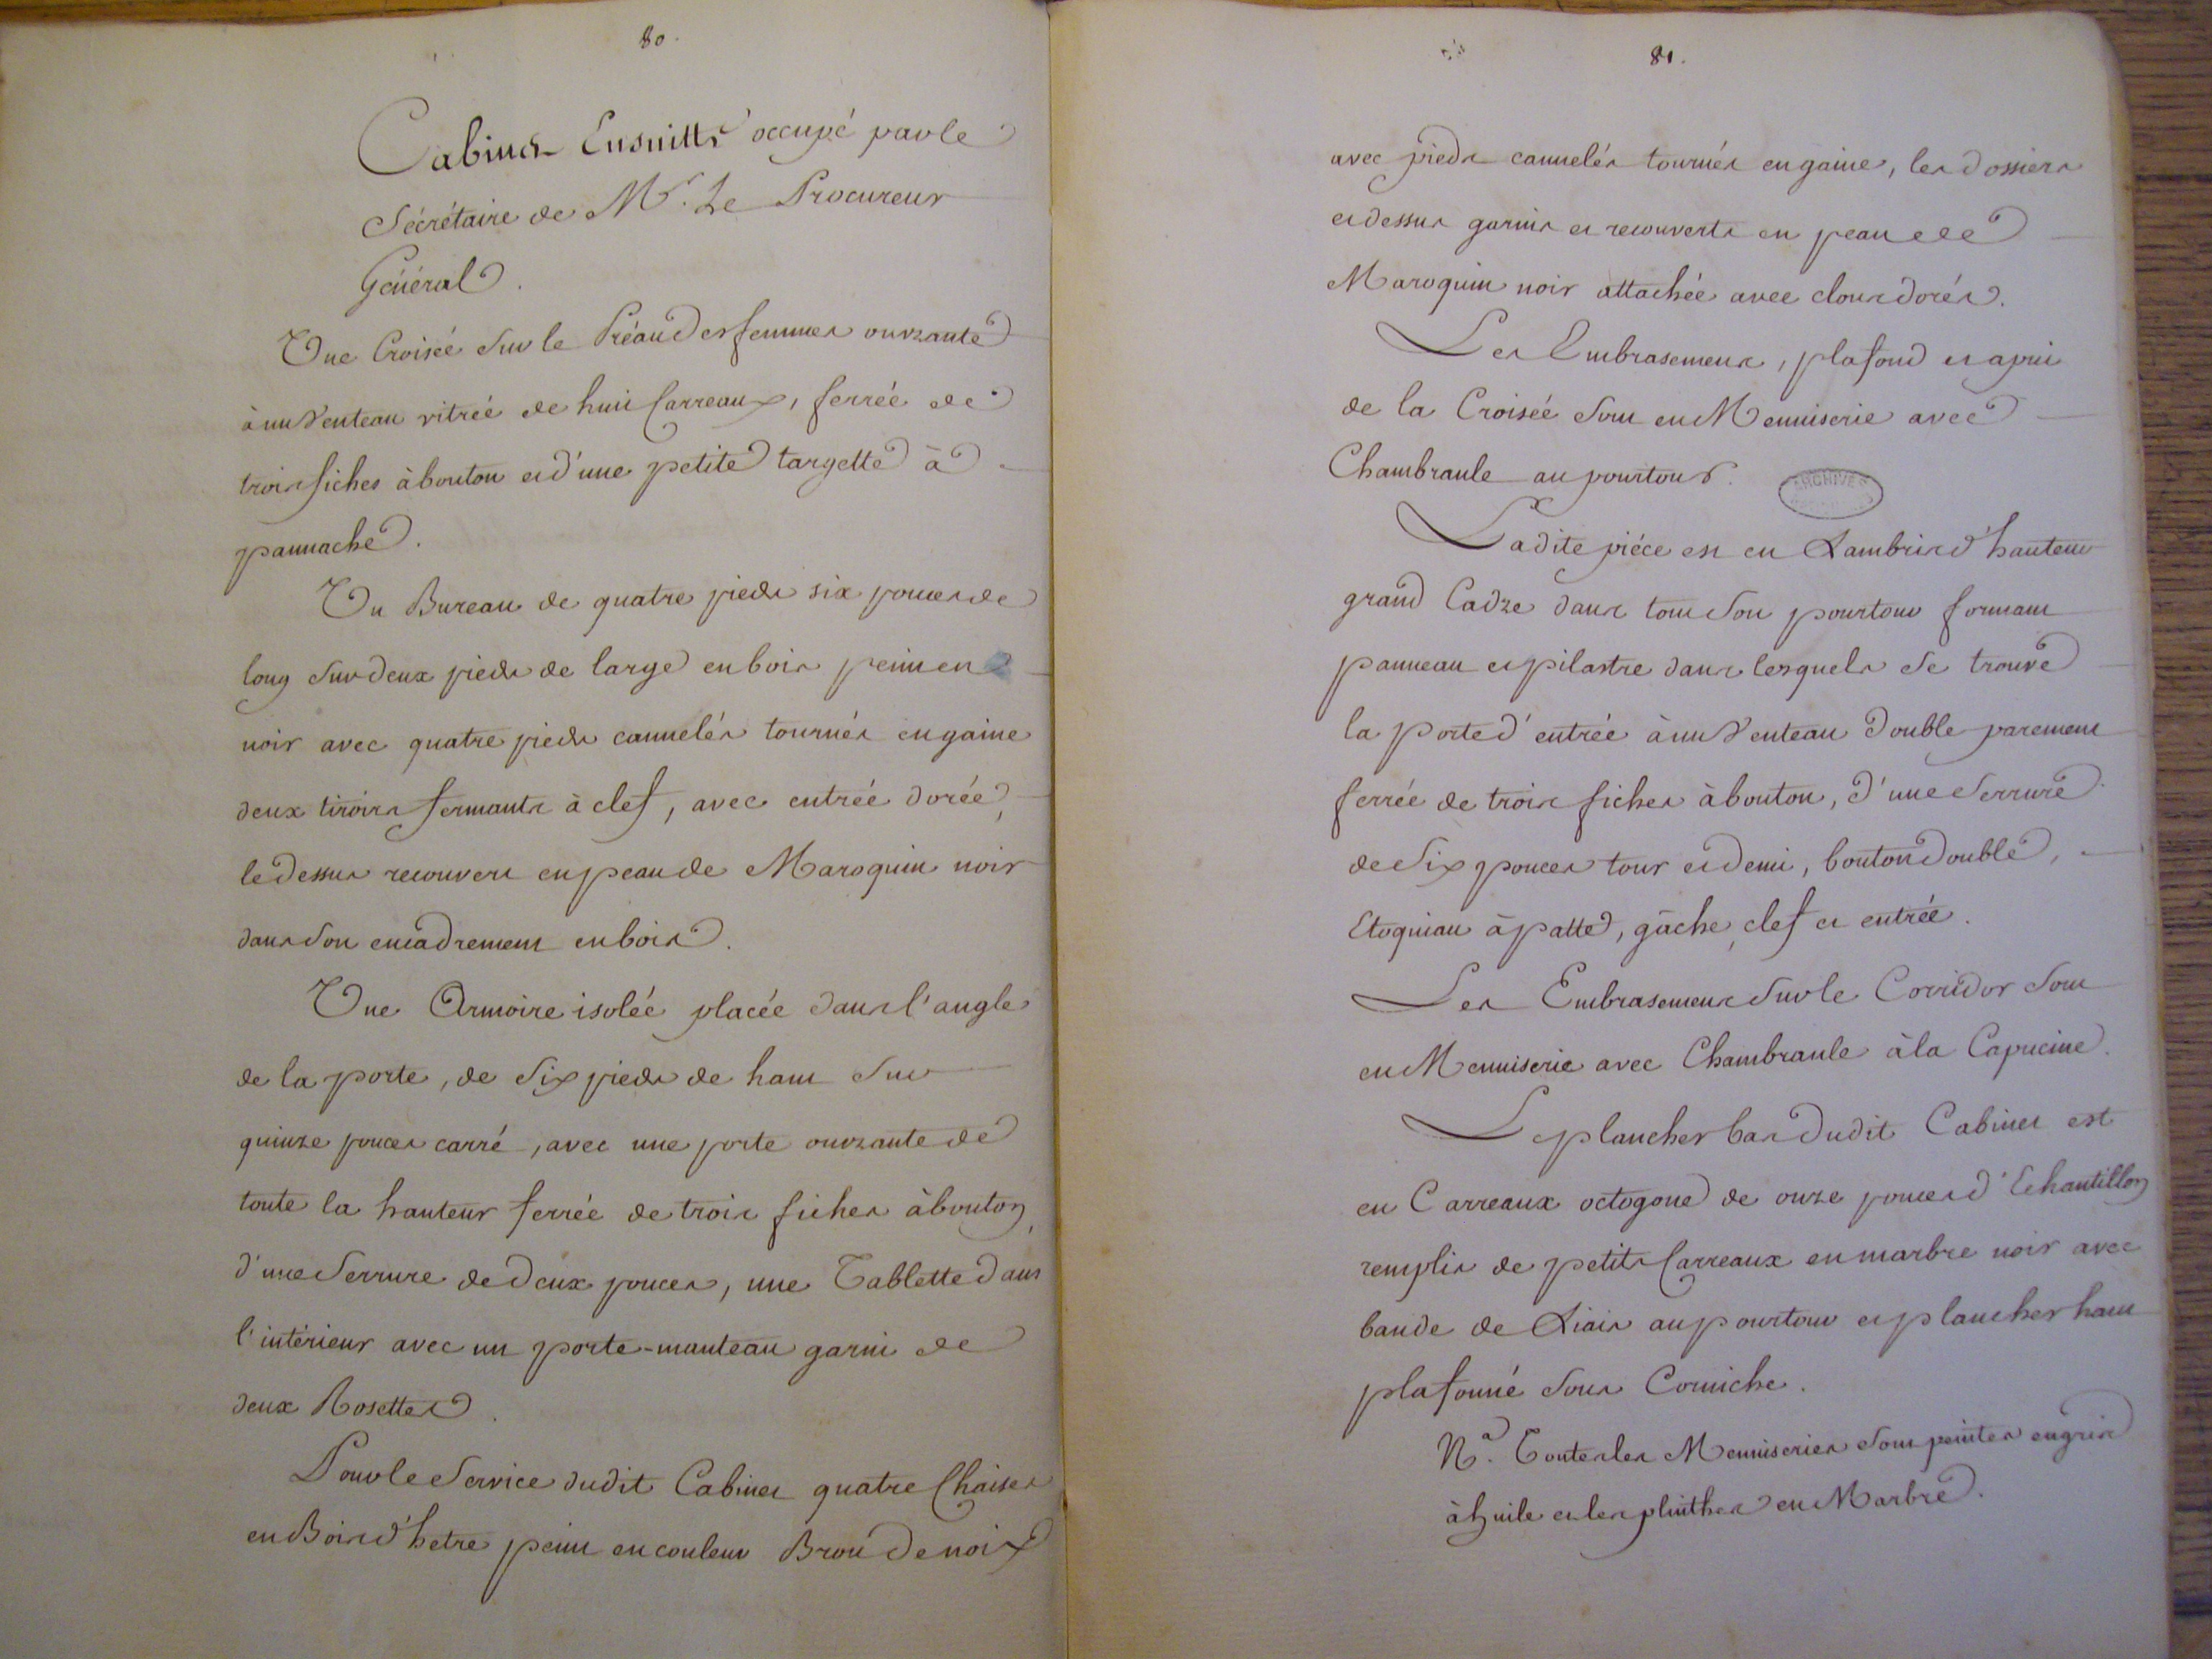 80.
Cabinet Ensuitte occupé par le
Sécrétaire de Mr. Le Procureur
Général.
Une Croisée sur le Préau des femmes ouvrante
à un Venteau vitrée de huit Carreaux, ferrée de
trois fiches à bouton et d'une petite targette à
pannache.
Un Bureau de quatre pieds six pouces de
long sur deux pieds de large en bois peint en
noir avec quatre pieds cannelés tournés en gaine
deux tiroirs fermants à clef, avec entrée dorée,
le dessus recouvert en peau de Maroquin noir
dans son encadrement en bois.
Une Armoire isolée placée dans l'angle
de la porte, de six pieds de haut sur
quinze pouces carré, avec une porte ouvrante de
toute la hauteur ferrée de trois fiches à bouton,
d'une Serrure de deux pouces, une Tablette dans
l'intérieur avec un porte-manteau garni de
deux Rosettes.
Pour le Service dudit Cabinet quatre Chaises
en Bois d'hetre peint en couleur Brou de noix
81.
avec pieds cannelés tournés en gaine, les dossiers
et dessus garnis et recouverts en peau de
Maroquin noir attachée avec clous dorés.
Les Embrasements, plafond et apui
de la Croisée sont en Menuiserie avec
Chambranle au pourtour.
ARCHIVES
Ladite piéce est en Lambris d'hauteur
grand Cadre dans tout son pourtour formant
panneau et pilastre dans lesquels se trouve
la porte d'entrée à un Venteau double parement
ferrée de trois fiches à bouton, d'une Serrure
de six pouces tour et demi, bouton double,
Etoquiau à patte, gâche, clef et entrée.
Les Embrasements sur le Corridor sont
en Menuiserie avec Chambranle à la Capucine.
Le plancher bas dudit Cabinet est
en Carreaux octogone de onze pouces d'Echantillon
remplis de petits Carreaux en marbre noir avec
bande de Liais au pourtour et plancher haut
plafonné sous Corniche.
Na. Toutes les Menuiseries sont peintes en gris
à huile et les plinthes en Marbre.